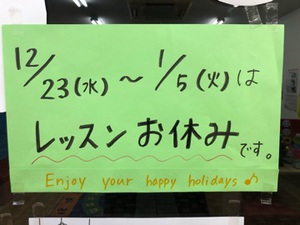 12/23(水)～1/5(火)は
レッスンお休みです。
Enjoy your happy holidays♪